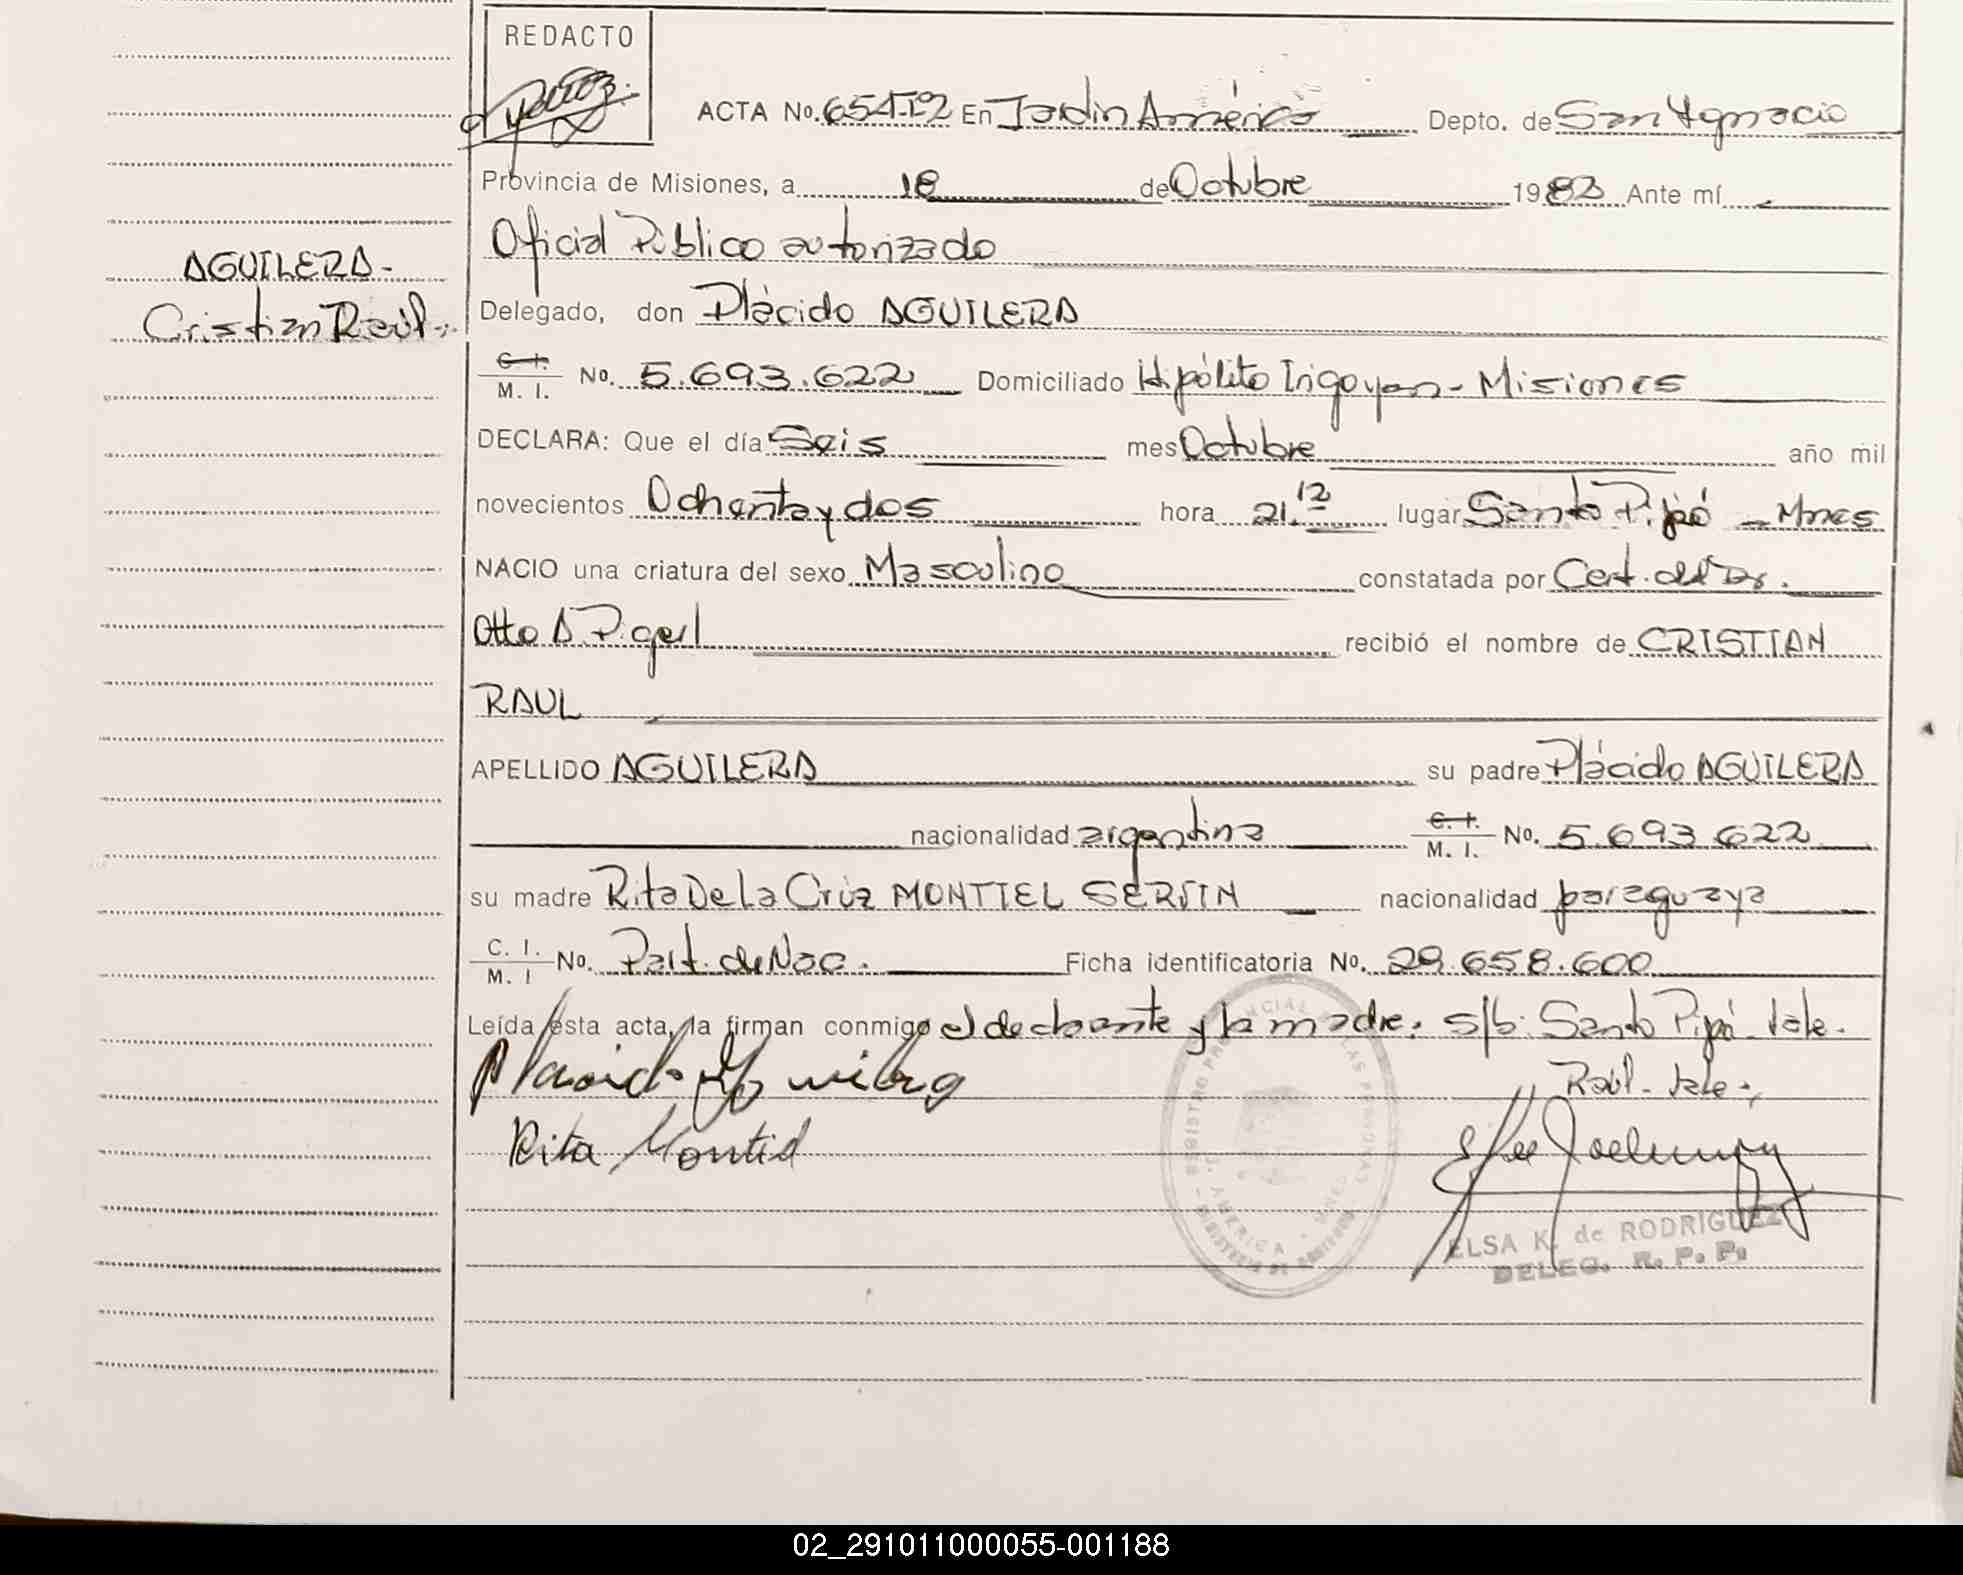 REDACTO
ACTA No. 654T2 En Jardín América Depto. de San Ygnacio
Provincia de Misiones, a 18 de Octubre 1982 Ante mí
Oficial Público autorizado
AGUILERA-
Delegado, don Plácido AGUILERA
Cristian Raúl-.
C. I. M. I. No. 5.693.622 Domiciliado Hipólito Irigoyen - Misiones
DECLARA: Que el día Seis mes Octubre año mil
novecientos Ochenta y dos hora 21.12 lugar Santo Pipó - Mnes
NACIO una criatura del sexo Masculino constatada por Cert. del Dr.
Otto A. recibió el nombre de CRISTIAN
RAUL
APELLIDO AGUILERA su padre Plácido AGUILERA
nacionalidad argentina C. I. M. I. No. 5.693.622
su madre Rita De La Cruz MONTIEL nacionalidad paraguaya
C. I. M. I No. Part. de Nac. Ficha identificatoria No. 29.658.600
Leída esta acta, la firman conmigo el declarante y la madre. s/b: Santo Pipó - Vale.
Raúl - Vale.
Rita Montiel
REGISTRO PROVINCIAL DE LAS PERSONAS
AMERICA
ELSA K. de RODRIGUEZ
DELEG. R. P. P.
02_291011000055-001188